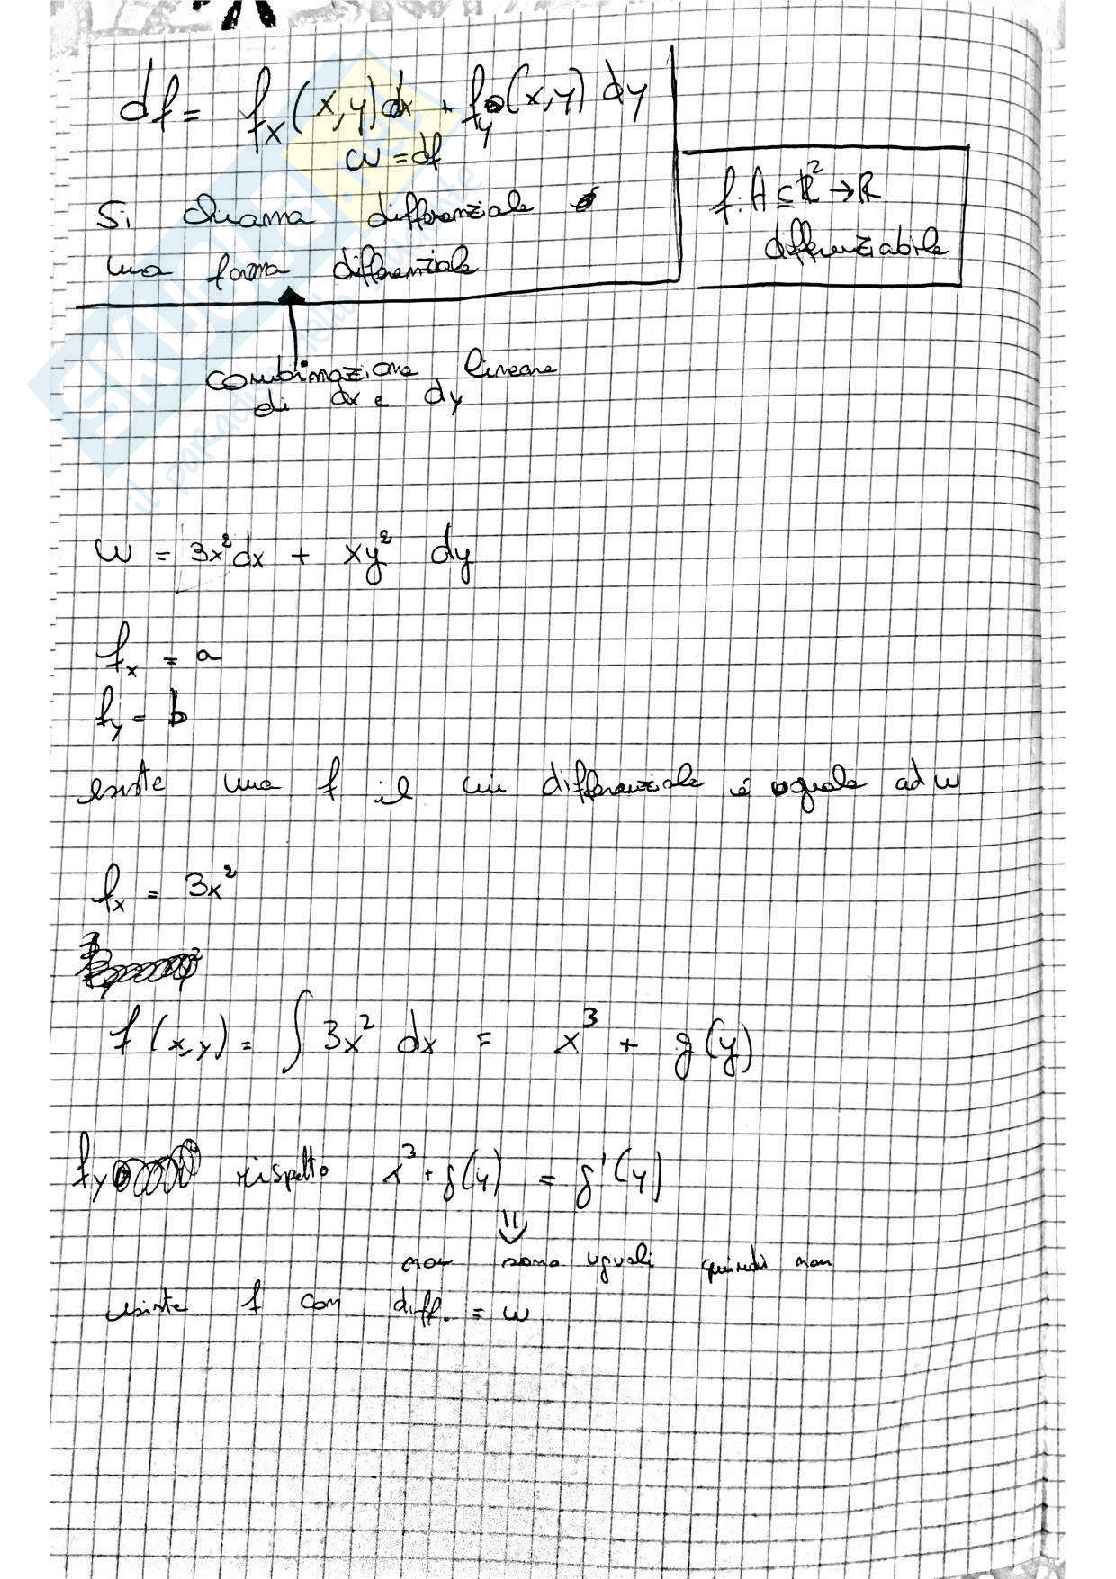 df = fx(x,y)dx + fy(x,y) dy
ω = df
Si chiama differenziale
una forma differenziale
f: A ⊆ ℝ² → ℝ
differenziabile
combinazione lineare
di dx e dy
ω = 3x² dx + xy² dy
fx = a
fy = b
esiste una f il cui differenziale è uguale ad ω
fx = 3x²
f(x,y) = ∫ 3x² dx = x³ + g(y)
fy rispetto x³ + g(y) = g'(y)
⇓
non sono uguali quindi non
esiste f con diff. = ω